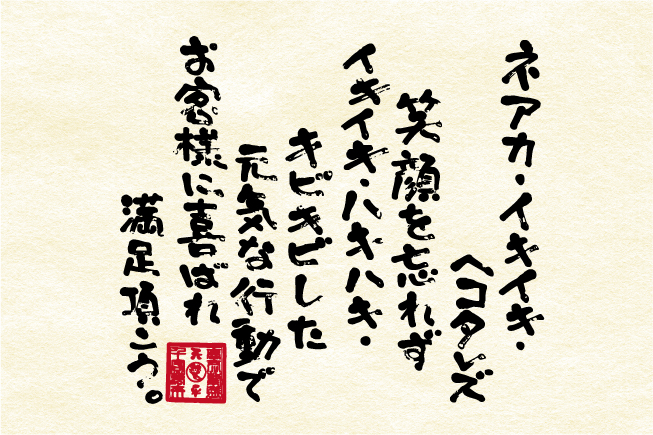 ネアカ・イキイキ・
ヘコタレズ
笑顔を忘れず
イキイキ・ハキハキ・
キビキビした
元気な行動で
お客様に喜ばれ
満足頂こう。